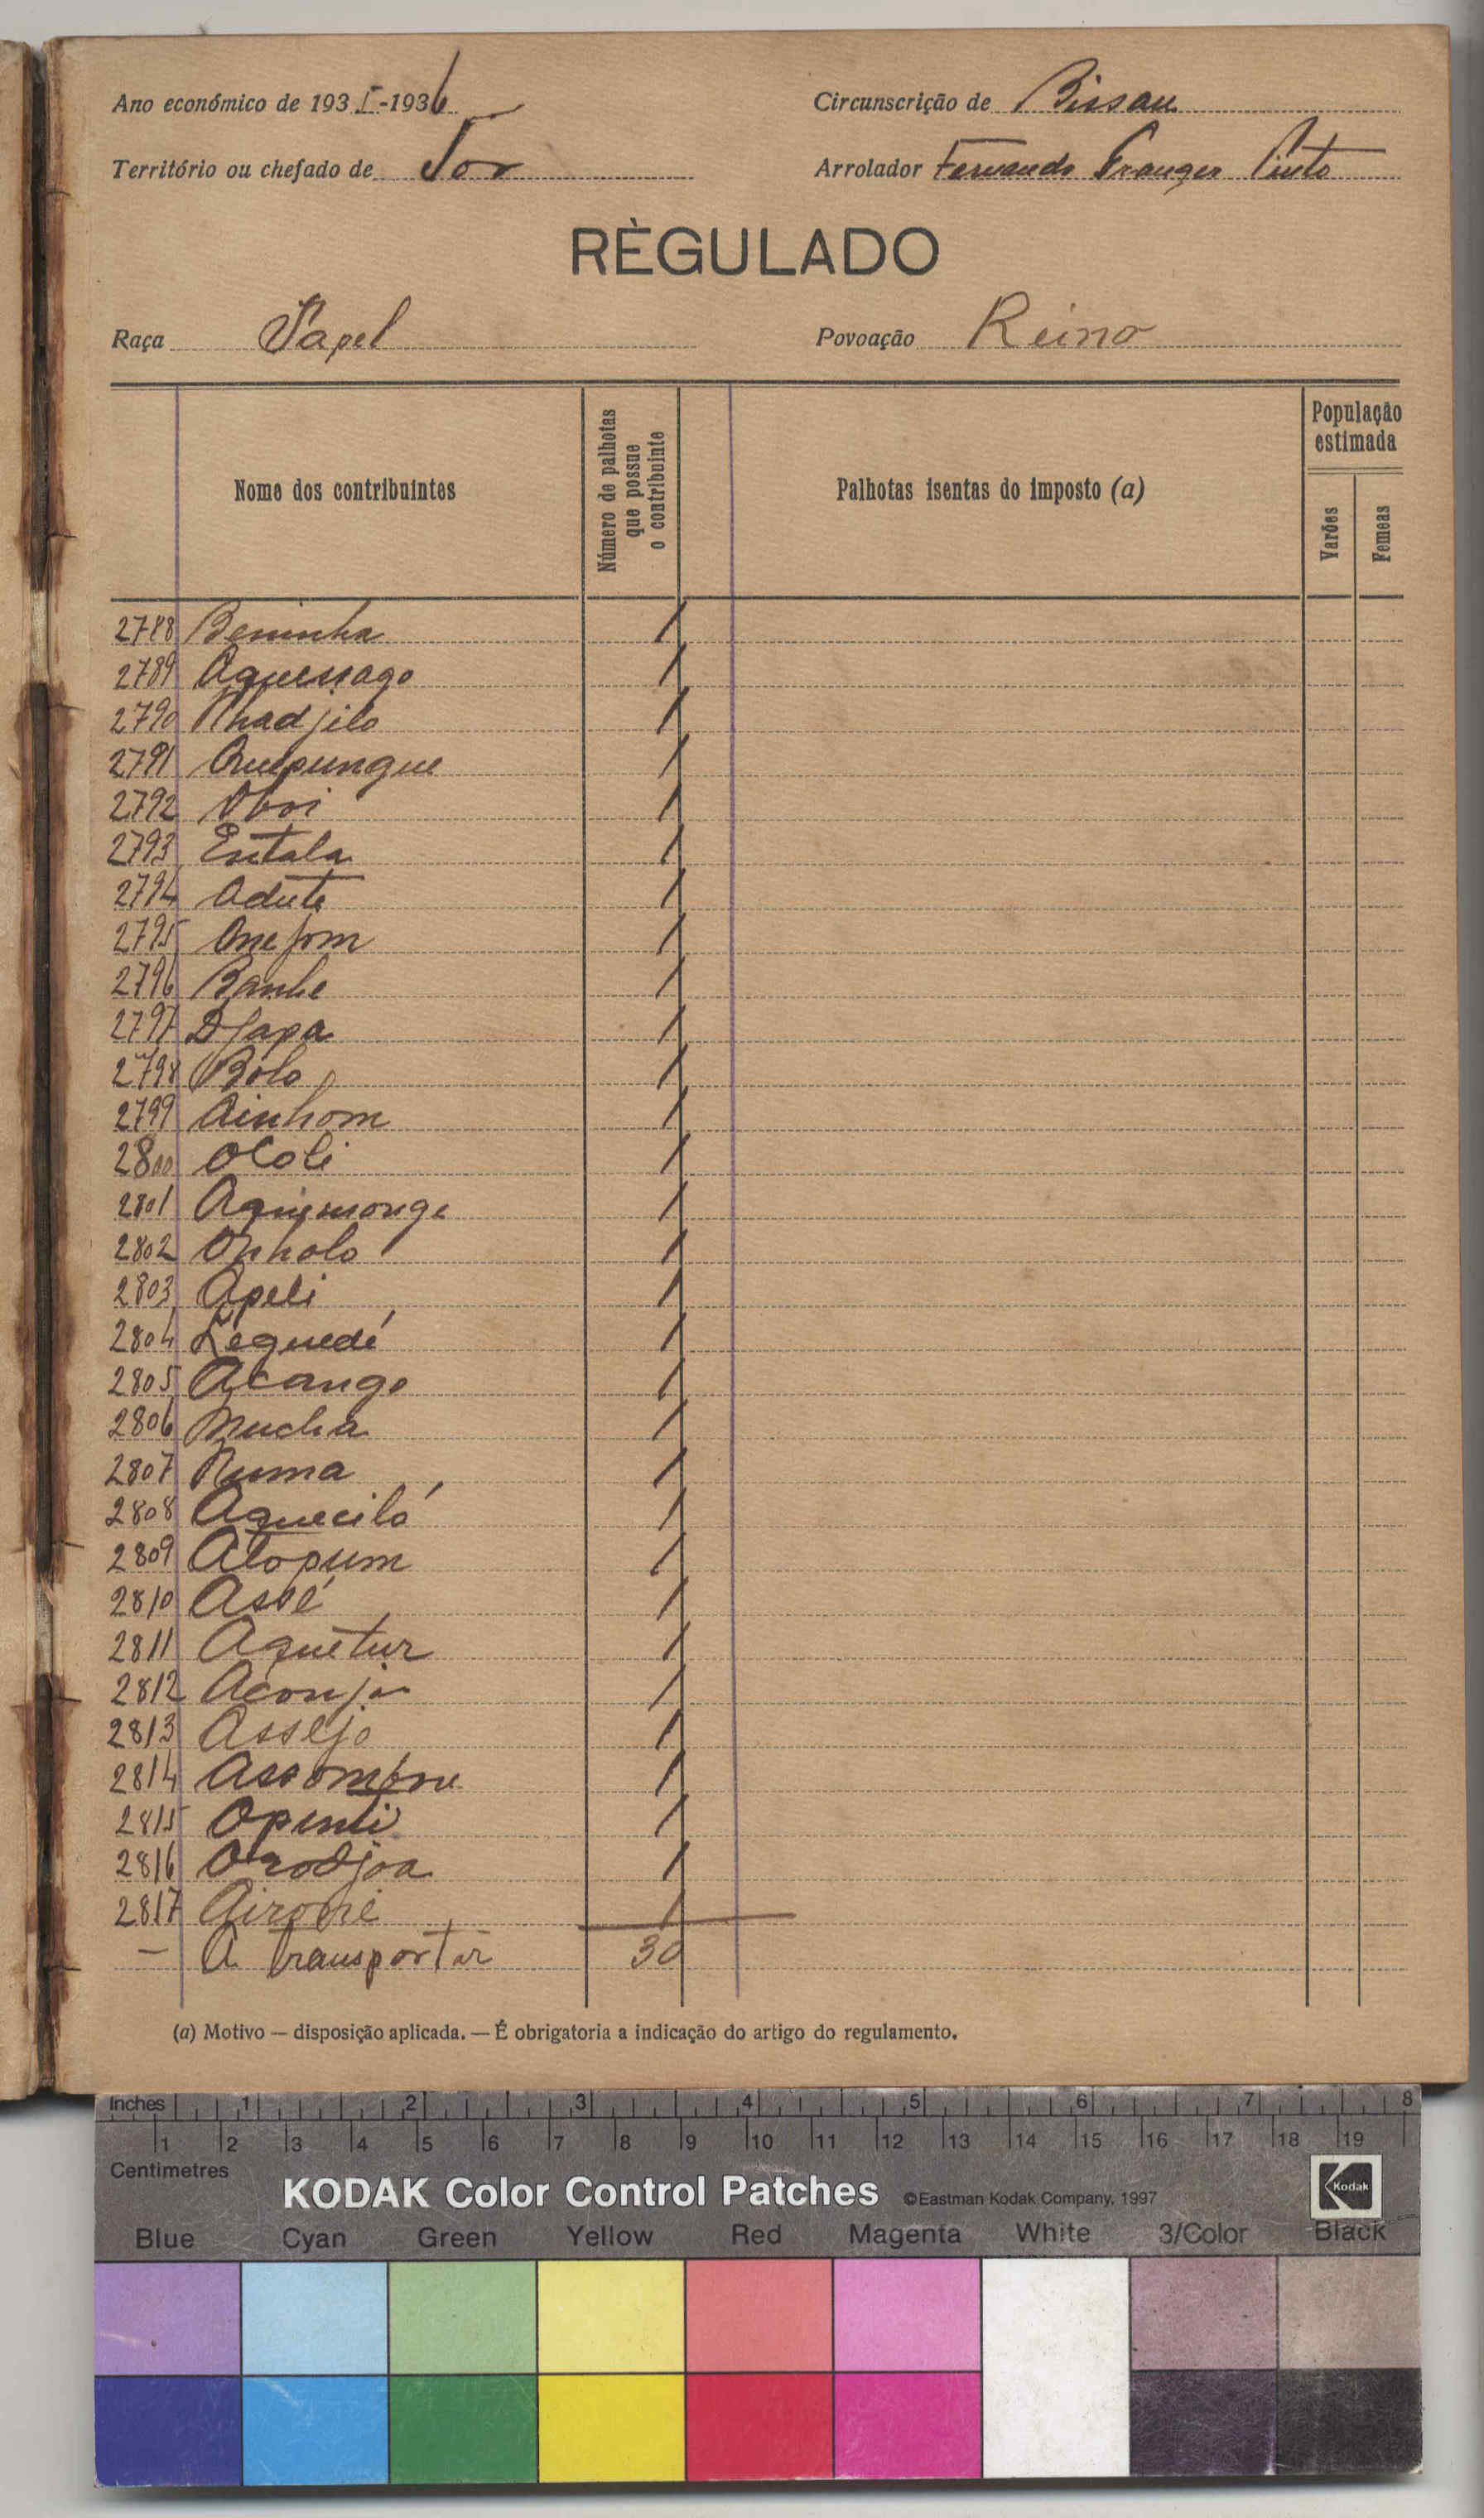 Ano económico de 1935-1936 Circunscrição de Bissau
Território ou chefado de Tor Arrolador Fernando Granger Pinto
RÈGULADO
Raça Papel Povoação Reino
Nome dos contribuintes
Número de palhotas que possue o contribuinte
Palhotas isentas do imposto (a)
População estimada
Varões
Femeas
2788 Beninha 1
2789 1
2790 1
2791 1
2792 1
2793 Entala 1
2794 Adute 1
2795 1
2796 Banhe 1
2797 Djapa 1
2798 Bolo 1
2799 Ainhom 1
2800 Ocoli 1
2801 1
2802 Onholo 1
2803 Apeli 1
2804 Leguedé 1
2805 Acango 1
2806 Mucha 1
2807 Numa 1
2808 Aqueciló 1
2809 Atopum 1
2810 Assé 1
2811 Aquetur 1
2812 1
2813 Assejo 1
2814 1
2815 1
2816 Orodjoa 1
2817 1
— A transportar 30
(a) Motivo — disposição aplicada. — É obrigatoria a indicação do artigo do regulamento.
Inches 1 2 3 4 5 6 7 8
1 2 3 4 5 6 7 8 9 10 11 12 13 14 15 16 17 18 19
Centimetres
KODAK Color Control Patches ©Eastman Kodak Company, 1997 Kodak
Blue Cyan Green Yellow Red Magenta White 3/Color Black